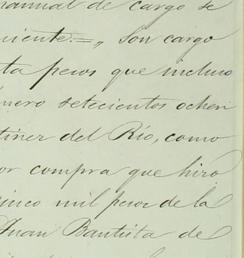 manual de cargo se
niente.=„ Son cargo
ta pesos que incluso
nero setecientos ochen
tiner del Rio, como
or compra que hizo
inco mil pesos de la
Juan Bautista de